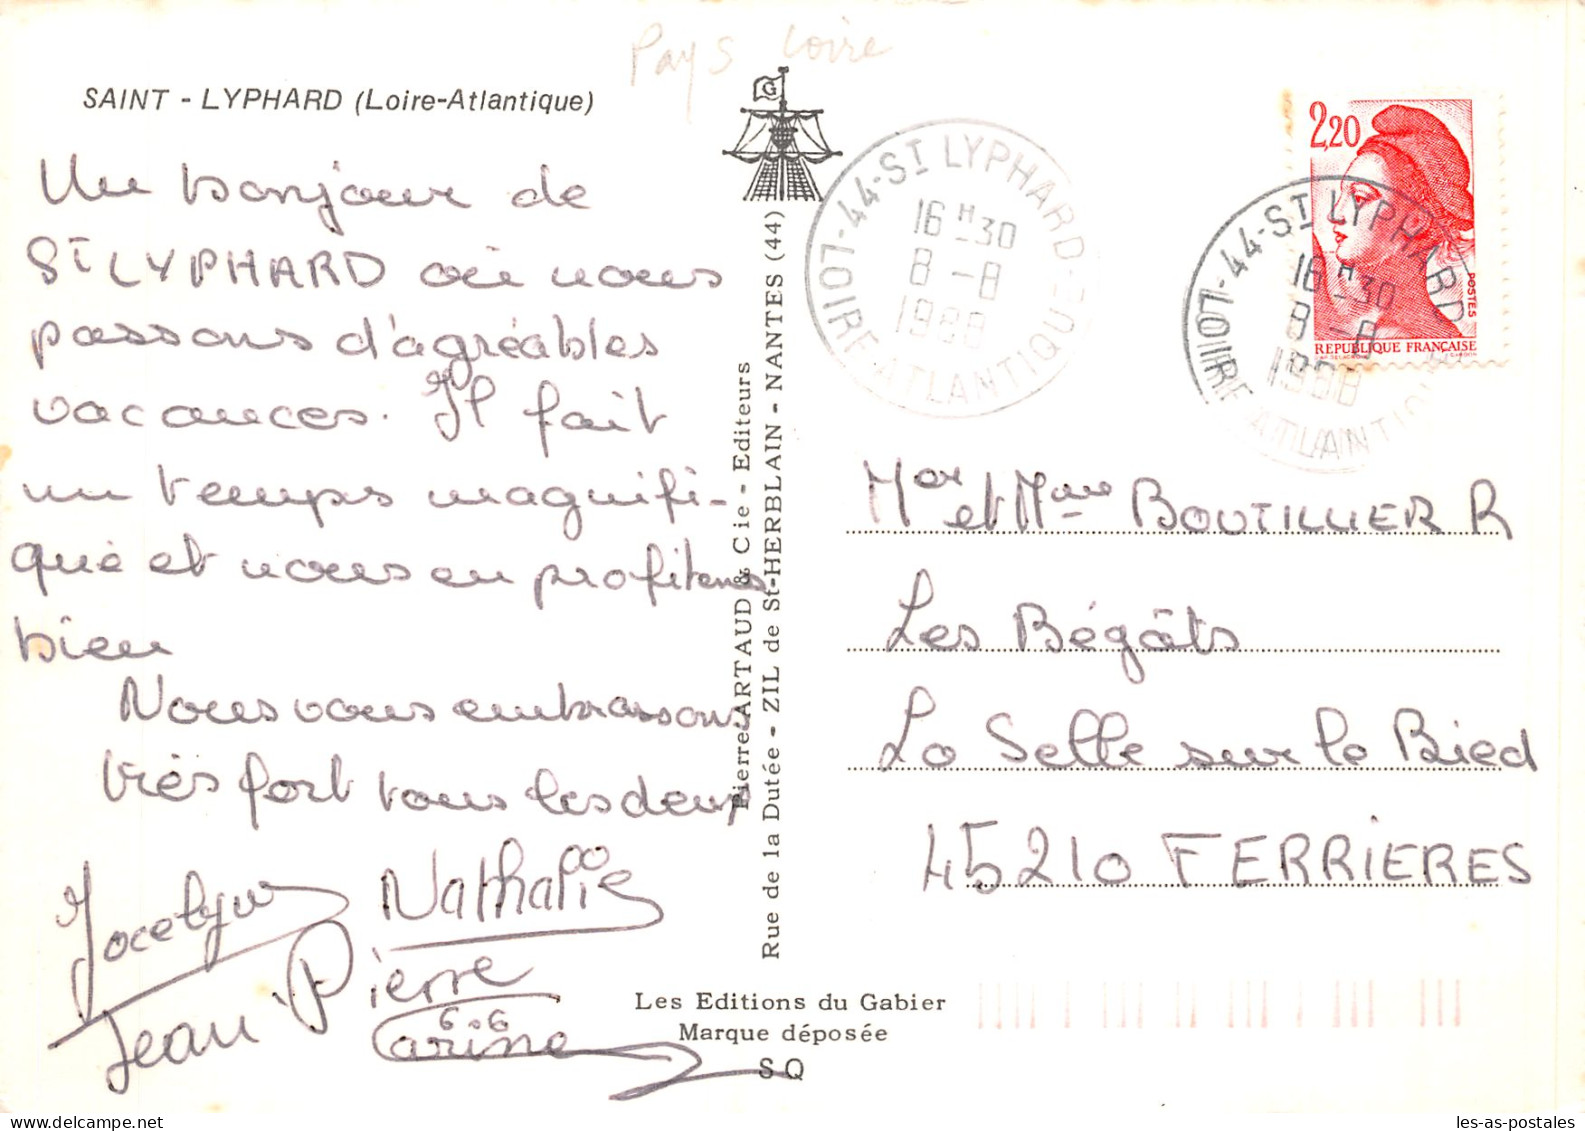 Pays Loire
SAINT - LYPHARD (Loire-Atlantique)
Un bonjour de
St LYPHARD où nous
passons d'agréables
vacances. Il fait
un temps magnifi-
que et nous en profitons
bien
Nous vous embrassons
très fort tous les deux
Jocelyne
Nathalie
Jean Pierre
Carine
G
Pierre ARTAUD & Cie - Editeurs
Rue de la Dutée - ZIL de St-HERBLAIN - NANTES (44)
Les Editions du Gabier
Marque déposée
SQ
44-ST LYPHARD
16H30
8-8
1988
LOIRE ATLANTIQUE
2,20
POSTES
REPUBLIQUE FRANÇAISE
44-ST LYPHARD
16H30
8-8
1988
LOIRE ATLANTIQUE
Mor et Mme BOUTILLIER R
Les Bégâts
La Selle sur le Bied
45210 FERRIERES
les-as-postales